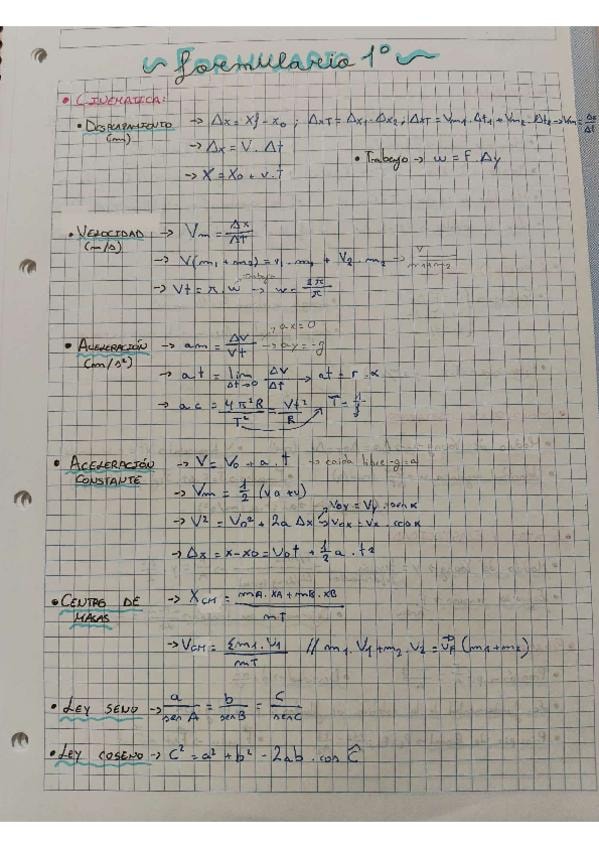 ~ Formulario 1º ~
• CINEMATICA:
• DESPLAZAMIENTO (m) → Δx = xf - x0 ; ΔxT = Δx1 + Δx2 ; ΔxT = Vm1 · Δt1 + Vm2 · Δt2 → Vm = Δx/Δt
→ Δx = V · Δt
• Trabajo → w = F · Δy
→ X = X0 + v · t
• VELOCIDAD (m/s) → Vm = Δx/Δt
→ V(m1 + m2) = v1 · m1 + V2 · m2 → V/m1+m2
→ Vt = π · w → w = 2π/π
• ACELERACIÓN (m/s²) → am = ΔV/Vt → ax = 0 → ay = -g
→ at = lim Δt→0 ΔV/Δt → at = r · α
→ ac = 4π²R/T² = Vt²/R T = 1/f
• ACELERACIÓN CONSTANTE → V = V0 + a · t → caida libre -g = a
→ Vm = 1/2 (va + v)
→ V² = V0² + 2a Δx → Voy = Vy · sen α → Vox = Vx · cos α
→ Δx = x - x0 = V0t + 1/2 a · t²
• CENTRO DE MASAS → XCM = mA · XA + mB · XB / mT
→ VCM = Σm1 · V1 / mT // m1 · V1 + m2 · V2 = Vf (m1 + m2)
• LEY SENO → a/sen A = b/sen B = c/sen C
• LEY COSENO → C² = a² + b² - 2ab · cos Ĉ